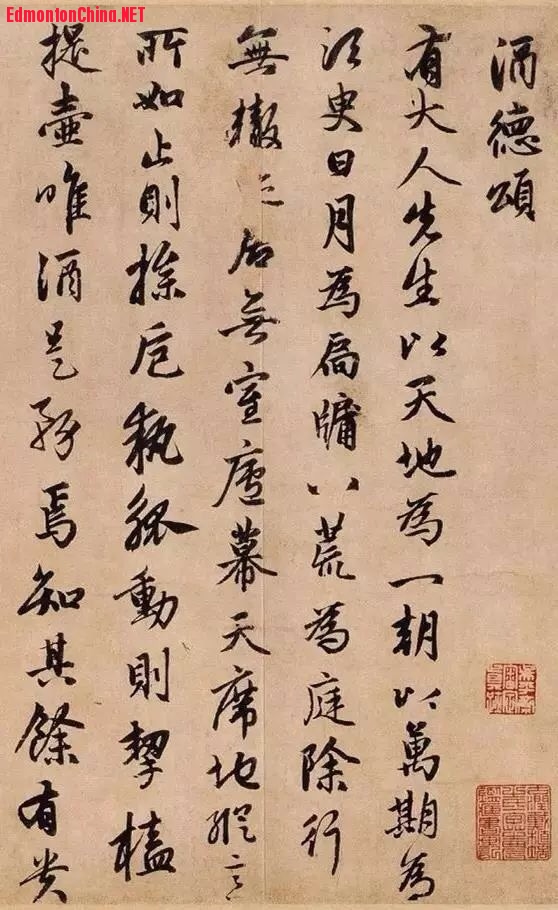 EdmontonChina.NET
酒德頌
有大人先生以天地為一朝以萬期為
須臾日月為扃牖八荒為庭除行
無轍迹居無室廬幕天席地縱意
所如止則操卮執觚動則挈榼
提壺唯酒是務焉知其餘有貴